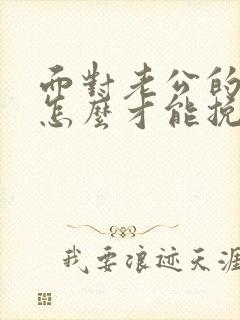 而對老公的
怎麼才能挽
我要浪迹天涯